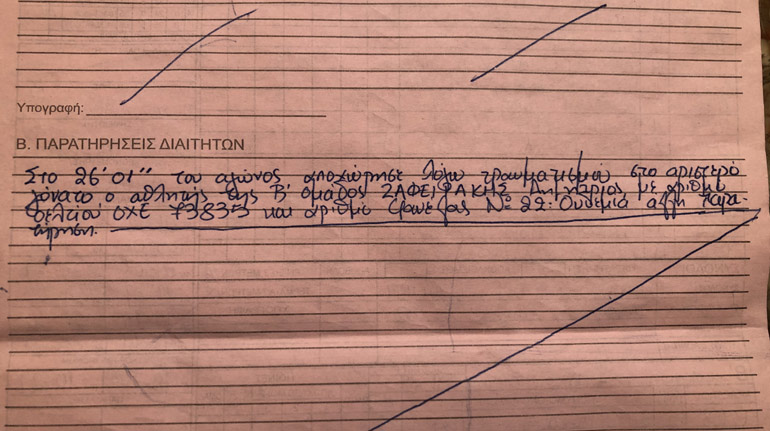 Υπογραφή:
Β. ΠΑΡΑΤΗΡΗΣΕΙΣ ΔΙΑΙΤΗΤΩΝ
Στο 26'01'' του αγώνος αποχώρησε λόγω τραυματισμού στο αριστερό
γόνατο ο αθλητής της Β' ομάδος ΖΑΦΕΙΡΑΚΗΣ Δημήτριος με αριθμό
δελτίου ΟΧΕ 73835 και αριθμό φανέλας Νο 22. Ουδεμία άλλη παρα-
τήρηση.